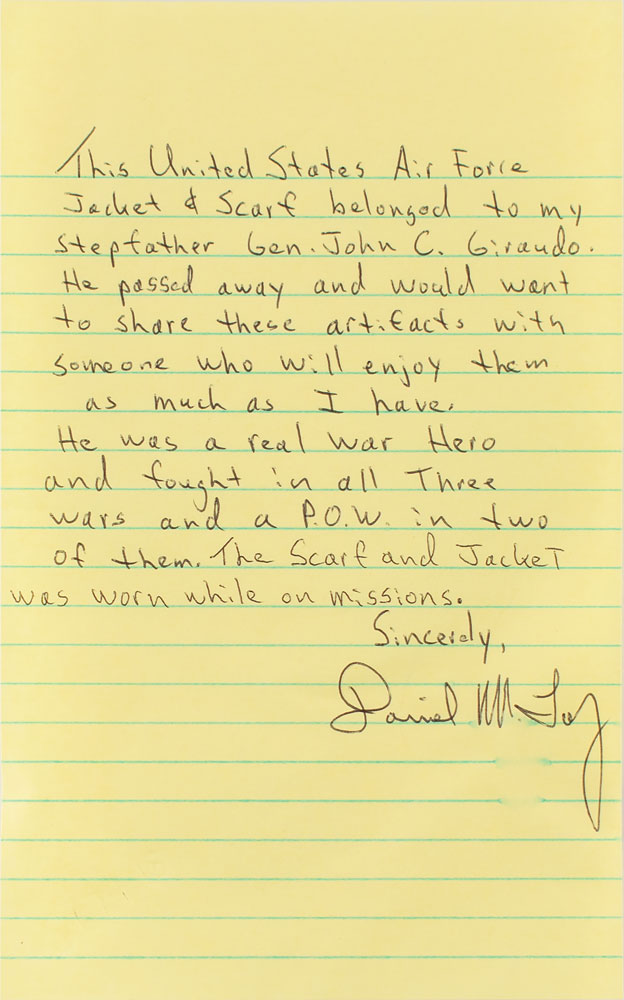 This United States Air Force
Jacket & Scarf belonged to my
Stepfather Gen. John C. Giraudo.
He passed away and would want
to share these artifacts with
someone who will enjoy them
as much as I have.
He was a real war Hero
and fought in all Three
wars and a P.O.W. in two
of them. The Scarf and Jacket
was worn while on missions.
Sincerely,
Daniel M.